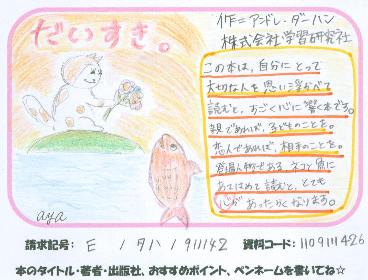 だいすき。
作=アンドレ・ダーハン
株式会社学習研究社
この本は、自分にとって
大切な人を思い浮かべて
読むと、すごく心に響く本です。
親であれば、子どものことを。
恋人であれば、相手のことを。
登場人物である、ネコと魚に
あてはめて読むと、とても
心があったかくなります。
aya
請求記号: E / タハ / 911142 資料コード: 1109111426
本のタイトル・著者・出版社、おすすめポイント、ペンネームを書いてね☆